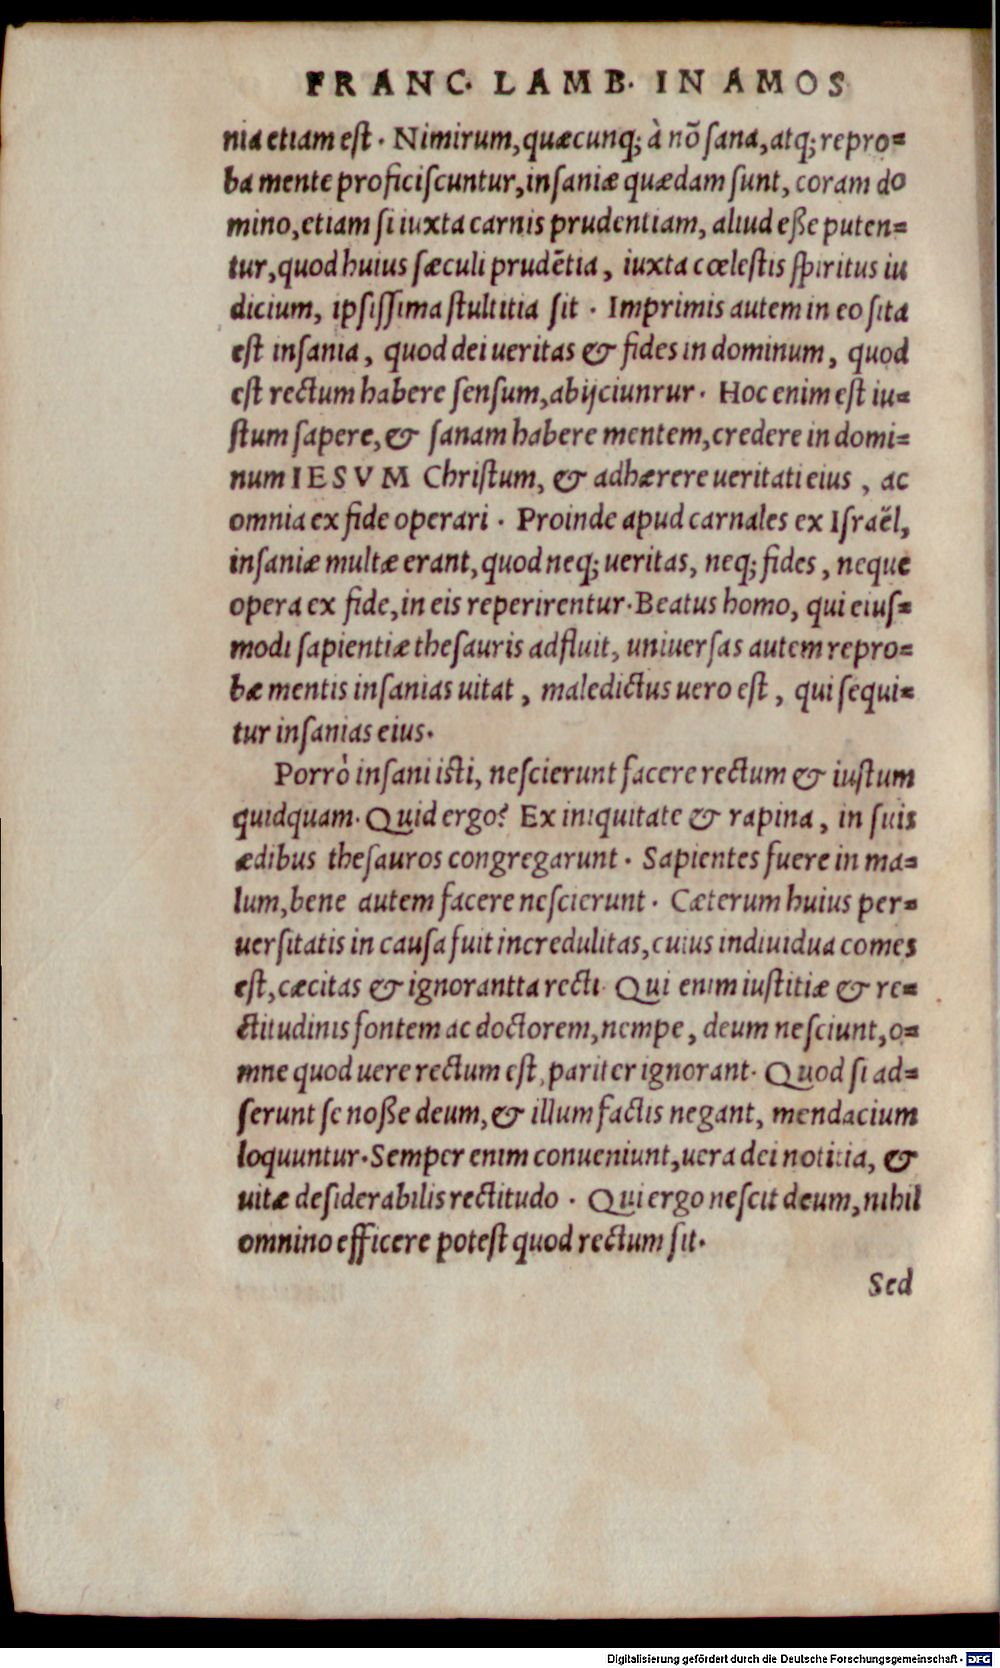 FRANC. LAMB. IN AMOS
nia etiam est. Nimirum, quæcunq; à nõ sana, atq; repro=
ba mente proficiscuntur, insaniæ quædam sunt, coram do
mino, etiam si iuxta carnis prudentiam, aliud eße puten=
tur, quod huius sæculi prudẽtia, iuxta cœlestis spiritus iu
dicium, ipsissima stultitia sit. Imprimis autem in eo sita
est insania, quod dei ueritas & fides in dominum, quod
est rectum habere sensum, abijciunrur. Hoc enim est iu=
stum sapere, & sanam habere mentem, credere in domi=
num IESVM Christum, & adhærere ueritati eius, ac
omnia ex fide operari. Proinde apud carnales ex Israël,
insaniæ multæ erant, quod neq; ueritas, neq; fides, neque
opera ex fide, in eis reperirentur. Beatus homo, qui eius=
modi sapientiæ thesauris adfluit, uniuersas autem repro=
bæ mentis insanias uitat, maledictus uero est, qui sequi=
tur insanias eius.
Porrò insani isti, nescierunt facere rectum & iustum
quidquam. Quid ergo? Ex iniquitate & rapina, in suis
ædibus thesauros congregarunt. Sapientes fuere in ma=
lum, bene autem facere nescierunt. Cæterum huius per=
uersitatis in causa fuit incredulitas, cuius indiuidua comes
est, cæcitas & ignorantta recti. Qui enim iustitiæ & re=
ctitudinis fontem ac doctorem, nempe, deum nesciunt, o=
mne quod uere rectum est, pariter ignorant. Quod si ad=
serunt se noße deum, & illum factis negant, mendacium
loquuntur. Semper enim conueniunt, uera dei notitia, &
uitæ desiderabilis rectitudo. Qui ergo nescit deum, nihil
omnino efficere potest quod rectum sit.
Sed
Digitalisierung gefördert durch die Deutsche Forschungsgemeinschaft - DFG